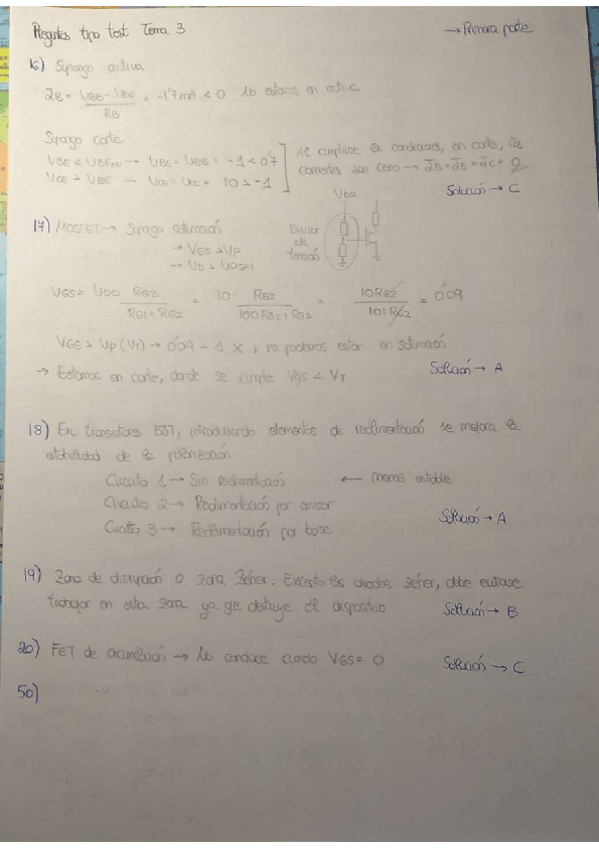 Preguntas tipo test Tema 3 → Primera parte
16) Supongo activa
IB = UBB - UBE / RB = -1'7mA < 0 No estamos en activa
Supongo corte
UBE < UBEON → UBE = UBB = -1 < 0'7
UCE > UBE → UCC = UCE = 10 > -1
Al cumplirse las condiciones, en corte, las
corrientes son cero → IB = IE = IC = 0
Solución → C
17) MOSFET → Supongo saturación
→ VGS > VP
→ UD > UDSAT
Divisor
de
tensión
VDD
VGS = VDD RG2 / RG1 + RG2 = 10 · RG2 / 100RG2 + RG2 = 10RG2 / 101RG2 = 0'09
VGS > Vp (VT) → 0'09 > 1 X, no podemos estar en saturación
Solución → A
→ Estamos en corte, donde se cumple VGS < VT
18) En transistores BJT, introduciendo elementos de realimentación se mejora la
estabilidad de la polarización
Circuito 1 → Sin realimentación ← menos estable
Circuito 2 → Realimentación por emisor
Circuito 3 → Realimentación por base
Solución → A
19) Zona de disrupción o zona Zéner. Excepto los diodos zéner, debe evitarse
trabajar en esta zona ya que destruye el dispositivo
Solución → B
20) FET de acumulación → No conduce cuando VGS = 0
Solución → C
50)